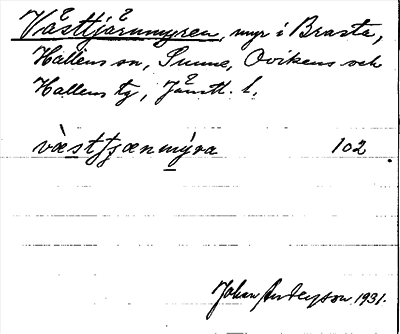 Västtjärnmyren, myr i Brasta,
Hallens sn, Sunne, Ovikens och
Hallens tg, Jämtl. l.
væstʃænmýra 102
Johan Anderson 1931.